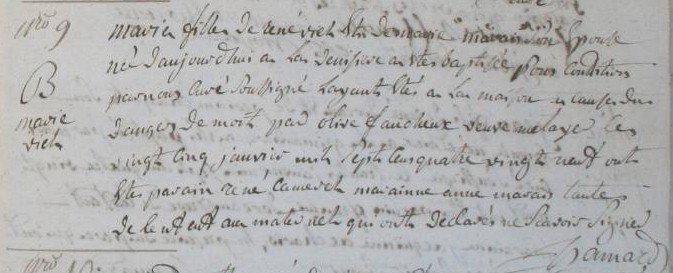 nro 9 marie fille de rené viel et de marie marais son Epouse
né d'aujourd'huy a la a etes baptisée sous condition
B par nous curé soussigné layant étés a la maison a cause du
marie viel danger de mort par olive faucheux veuve le
vingt cinq janvier mil sept cens quatre vingt neuf ont
etes parain rené marainne anne marais tante
de lenfent au maternel qui ont déclarés ne scavoir signer
hamard
nro